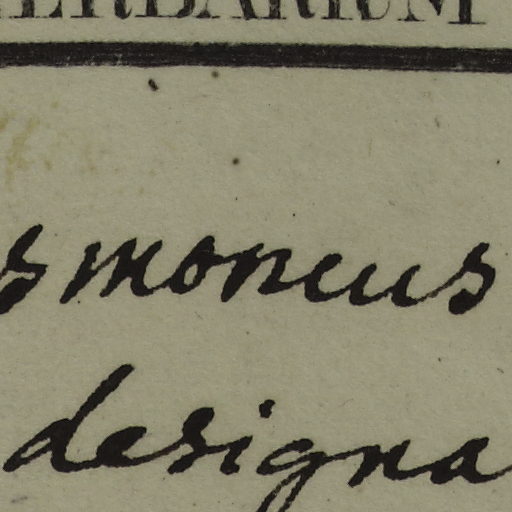 HERBARIUM
smoncus
designa